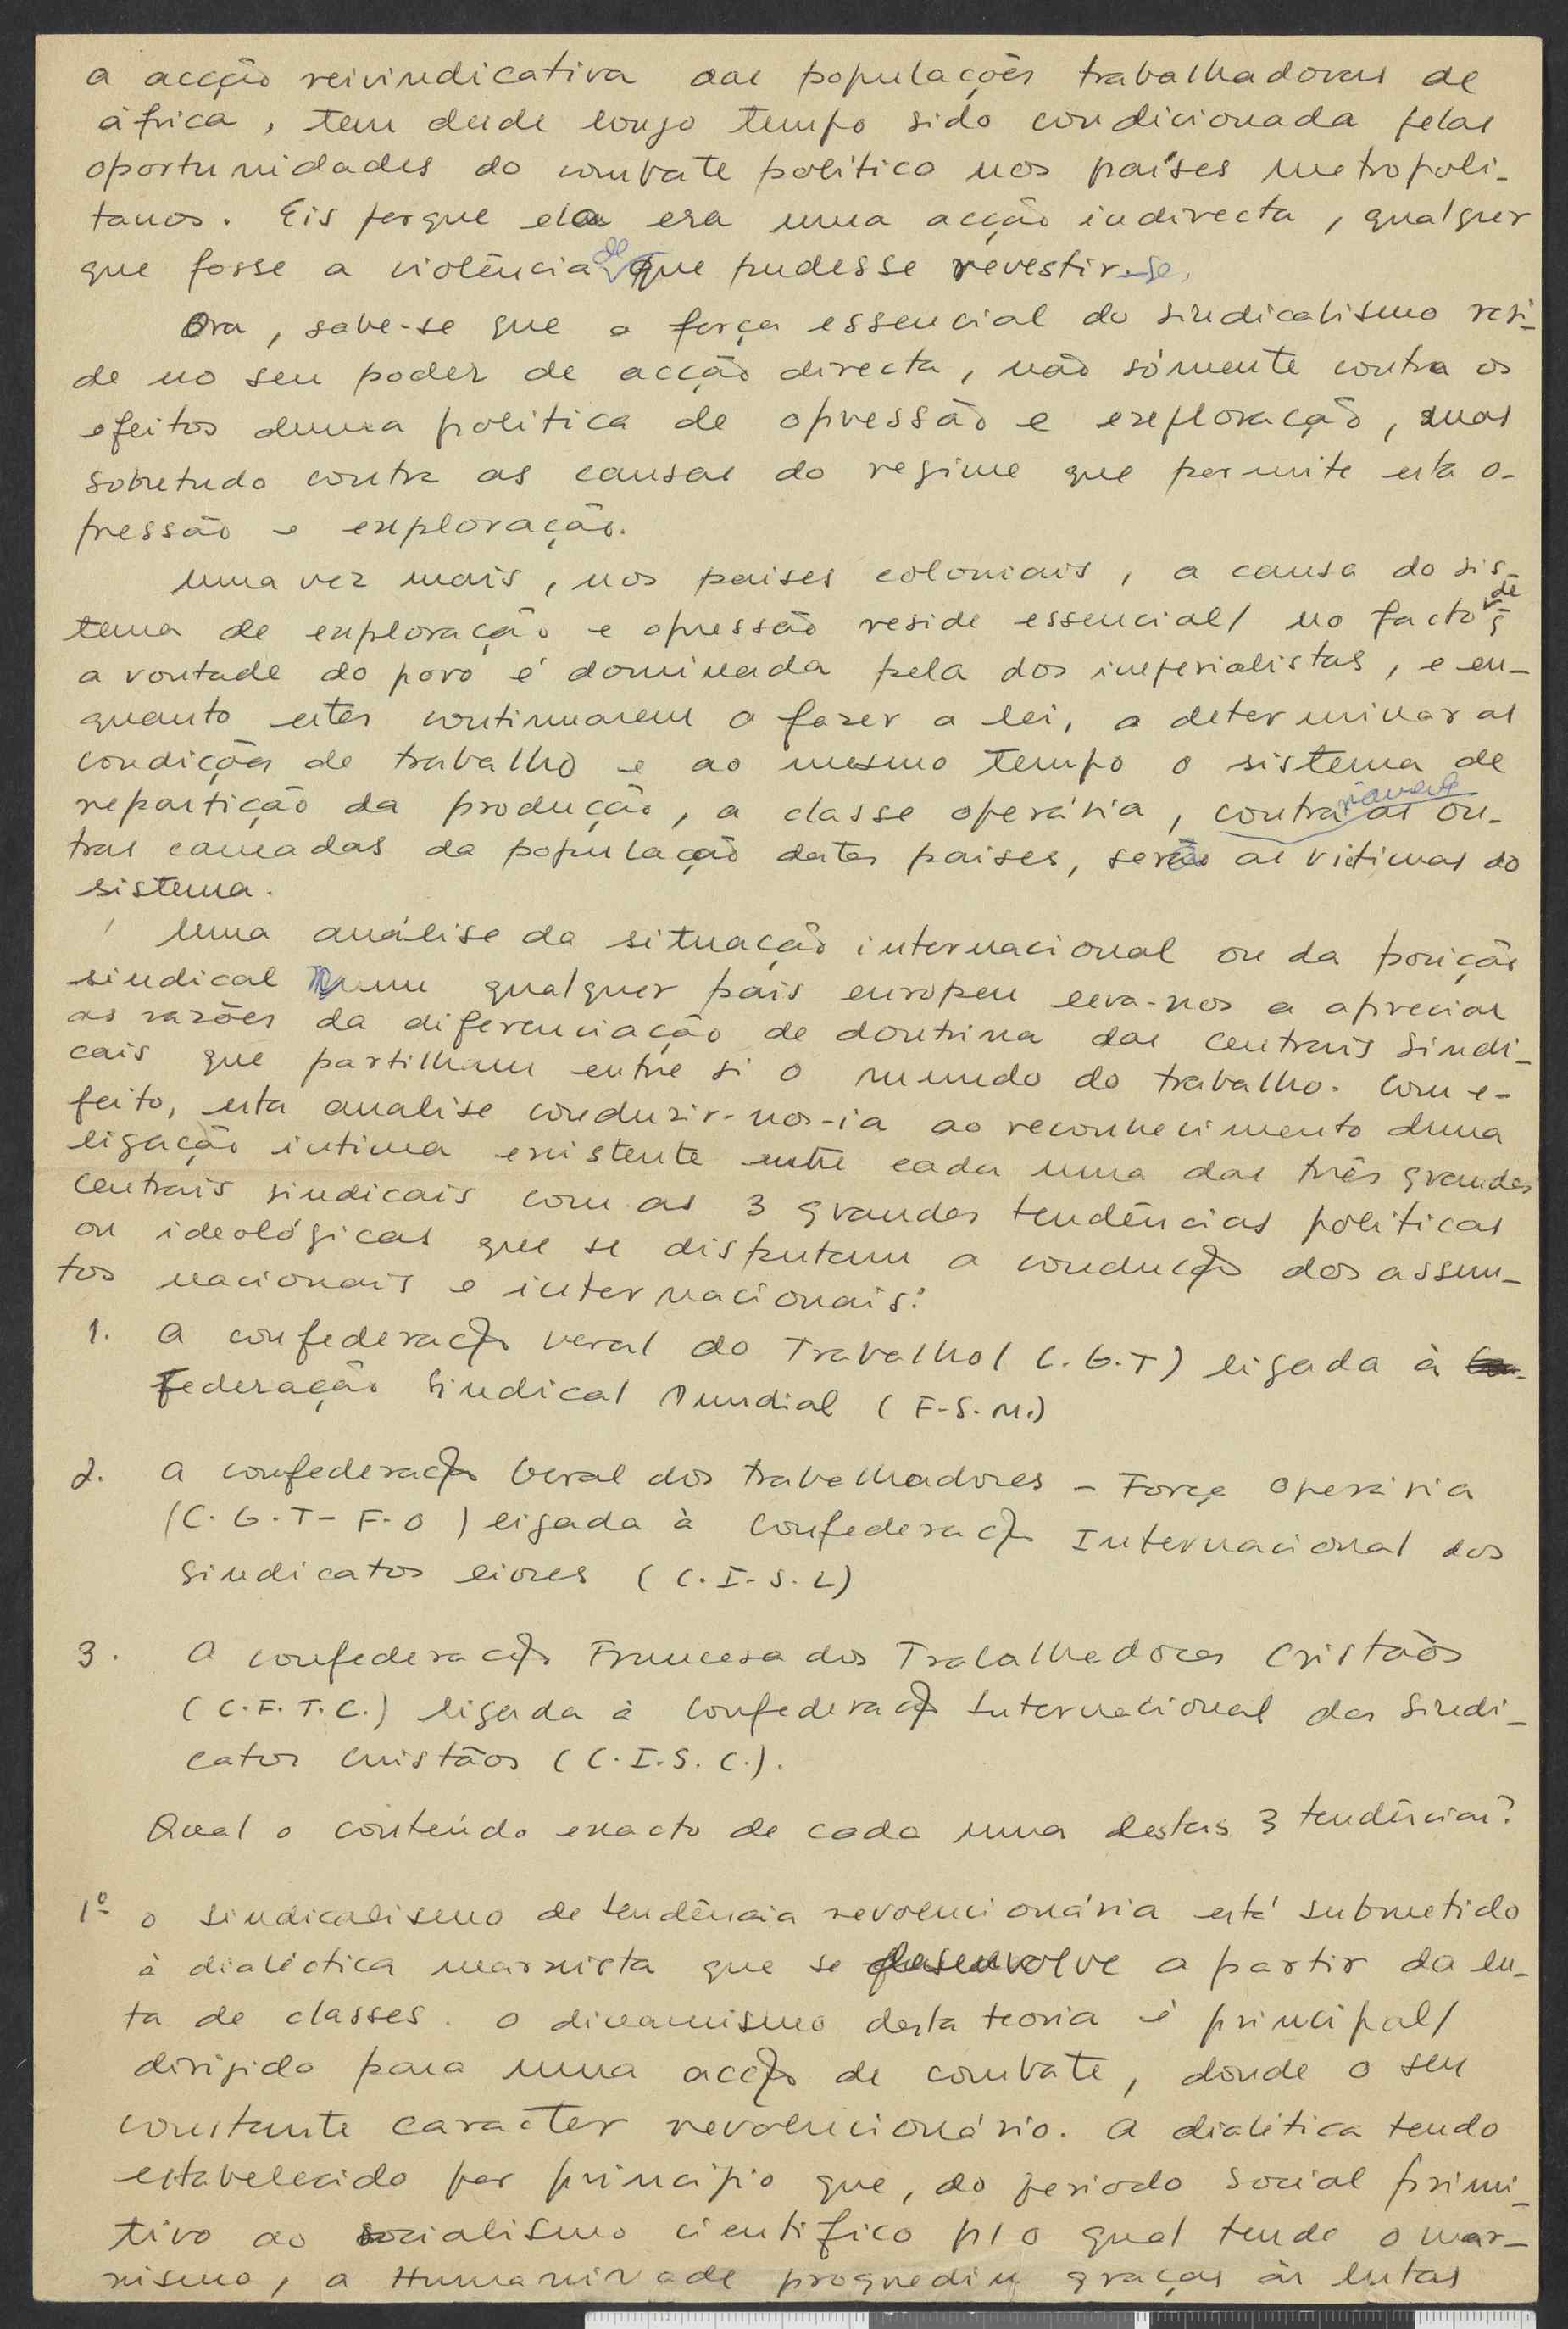 a acção reivindicativa das populações trabalhadoras de
áfrica, tem desde longo tempo sido condicionada pelas
oportunidades do combate político nos países metropoli-
tanos. Eis porque ela era uma acção indirecta, qualquer
que fosse a violência de que pudesse revestir-se.
Ora, sabe-se que a força essencial do sindicalismo resi-
de no seu poder de acção directa, não sómente contra os
efeitos duma politica de opressão e exploração, mas
sobretudo contra as causas do regime que permite esta o-
pressão e exploração.
Uma vez mais, nos paises coloniais, a causa do sis-
tema de exploração e opressão reside essencial/ no facto de q̃
a vontade do povo é dominada pela dos imperialistas, e en-
quanto estes continuarem a fazer a lei, a determinar as
condições de trabalho e ao mesmo tempo o sistema de
repartição da produção, a classe operária, contra as ou-
tras camadas da população destes paises, serão as vitimas do
sistema.
Uma análise da situação internacional ou da posição
sindical num qualquer pais europeu leva-nos a apreciar
as razões da diferenciação de doutrina das centrais sindi-
cais que partilham entre si o mundo do trabalho. Com e-
feito, esta analise conduzir-nos-ia ao reconhecimento duma
ligação intima existente entre cada uma das três grandes
centrais sindicais com as 3 grandes tendências politicas
ou ideológicas que se disputam a condução dos assun-
tos nacionais e internacionais:
1. A confederação Geral do Trabalho (C.G.T) ligada à
Federação Sindical Mundial (F.S.M.)
2. A confederação Geral dos trabalhadores - Força Operária
(C.G.T-F.O) ligada à Confederação Internacional dos
Sindicatos livres (C.I.S.L)
3. A confederação Francesa dos Trabalhadores Cristãos
(C.F.T.C.) ligada à Confederação Internacional dos Sindi-
catos Cristãos (C.I.S.C.).
Qual o conteúdo exacto de cada uma destas 3 tendências?
1º o sindicalismo de tendência revolucionária está submetido
à dialéctica marxista que se desenvolve a partir da lu-
ta de classes. o dinamismo desta teoria é principal/
dirigido para uma acção de combate, donde o seu
constante caracter revolucionário. A dialética tendo
estabelecido por principio que, do periodo social primi-
tivo ao socialismo cientifico p/ o qual tende o mar-
xismo, a Humanidade progrediu graças às lutas